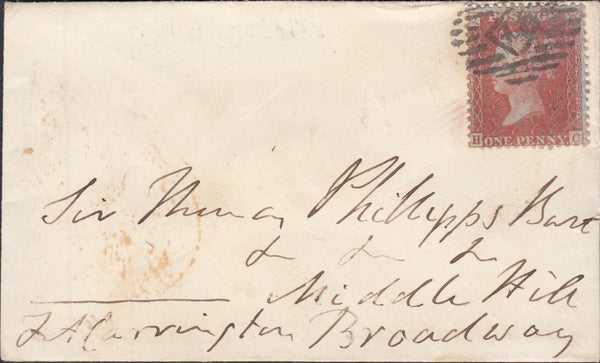 POSTAGE
H ONE PENNY C
Sir Thomas Phillipps Bart
& & &
Middle Hill
Broadway
F A Carrington